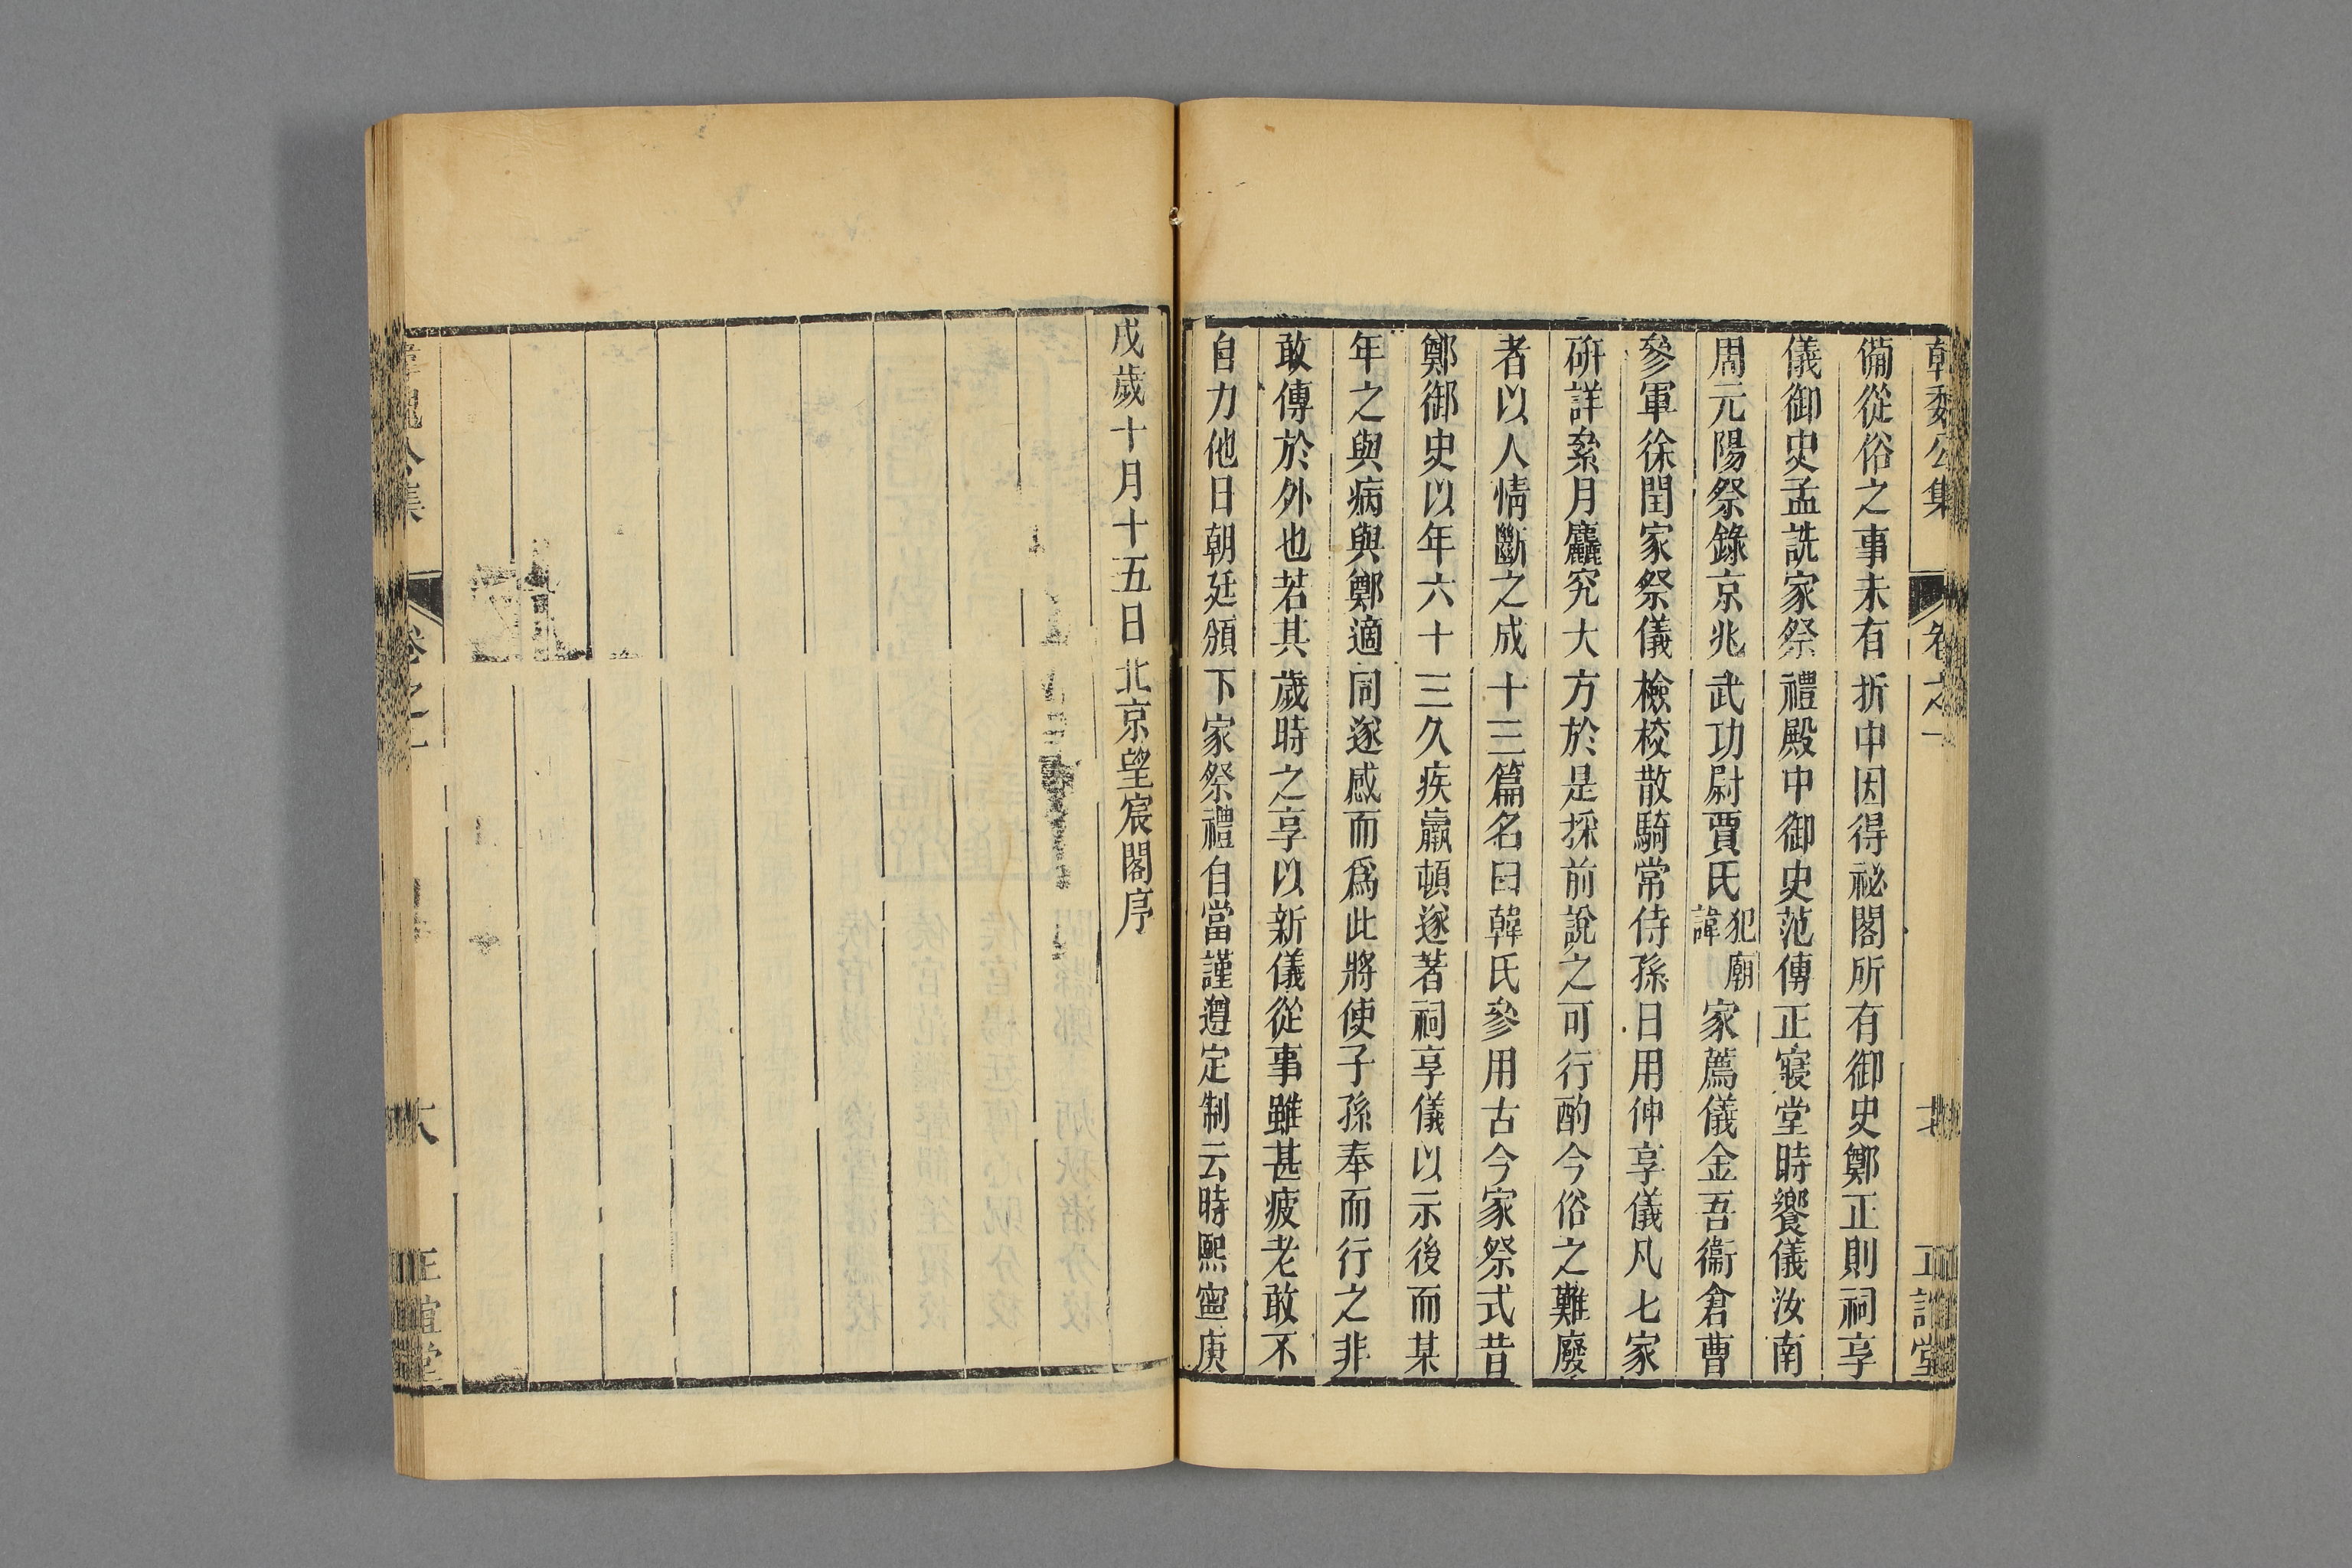 韓魏公集 卷之一 正誼堂
備從俗之事未有折中因得祕閣所有御史鄭正則祠享
儀御史孟詵家祭禮殿中御史范傳正寢堂時饗儀汝南
周元陽祭錄京兆武功尉賈氏犯廟諱家薦儀金吾衞倉曹
參軍徐閏家祭儀檢校散騎常侍孫日用仲享儀凡七家
硏詳絫月麤究大方於是採前說之可行酌今俗之難廢
者以人情斷之成十三篇名曰韓氏參用古今家祭式昔
鄭御史以年六十三久疾羸頓遂著祠享儀以示後而某
年之與病與鄭適同遂感而爲此將使子孫奉而行之非
敢傳於外也若其歲時之享以新儀從事雖甚疲老敢不
自力他日朝廷頒下家祭禮自當謹遵定制云時熙寧庚
戌歲十月十五日北京望宸閣序
韓魏公集 卷之一 六 正誼堂